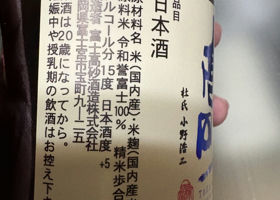 品目
日本酒
原材料名 米(国内産)・米麹(国内産
原料米 令和誉富士100% 精米歩合
アルコール分 15度 日本酒度 +5
製造者 富士高砂酒造株式会社
岡県富士宮市宝町九ー二五
酒は20歳になってから。
娠中や授乳期の飲酒はお控え下
杜氏 小野浩二